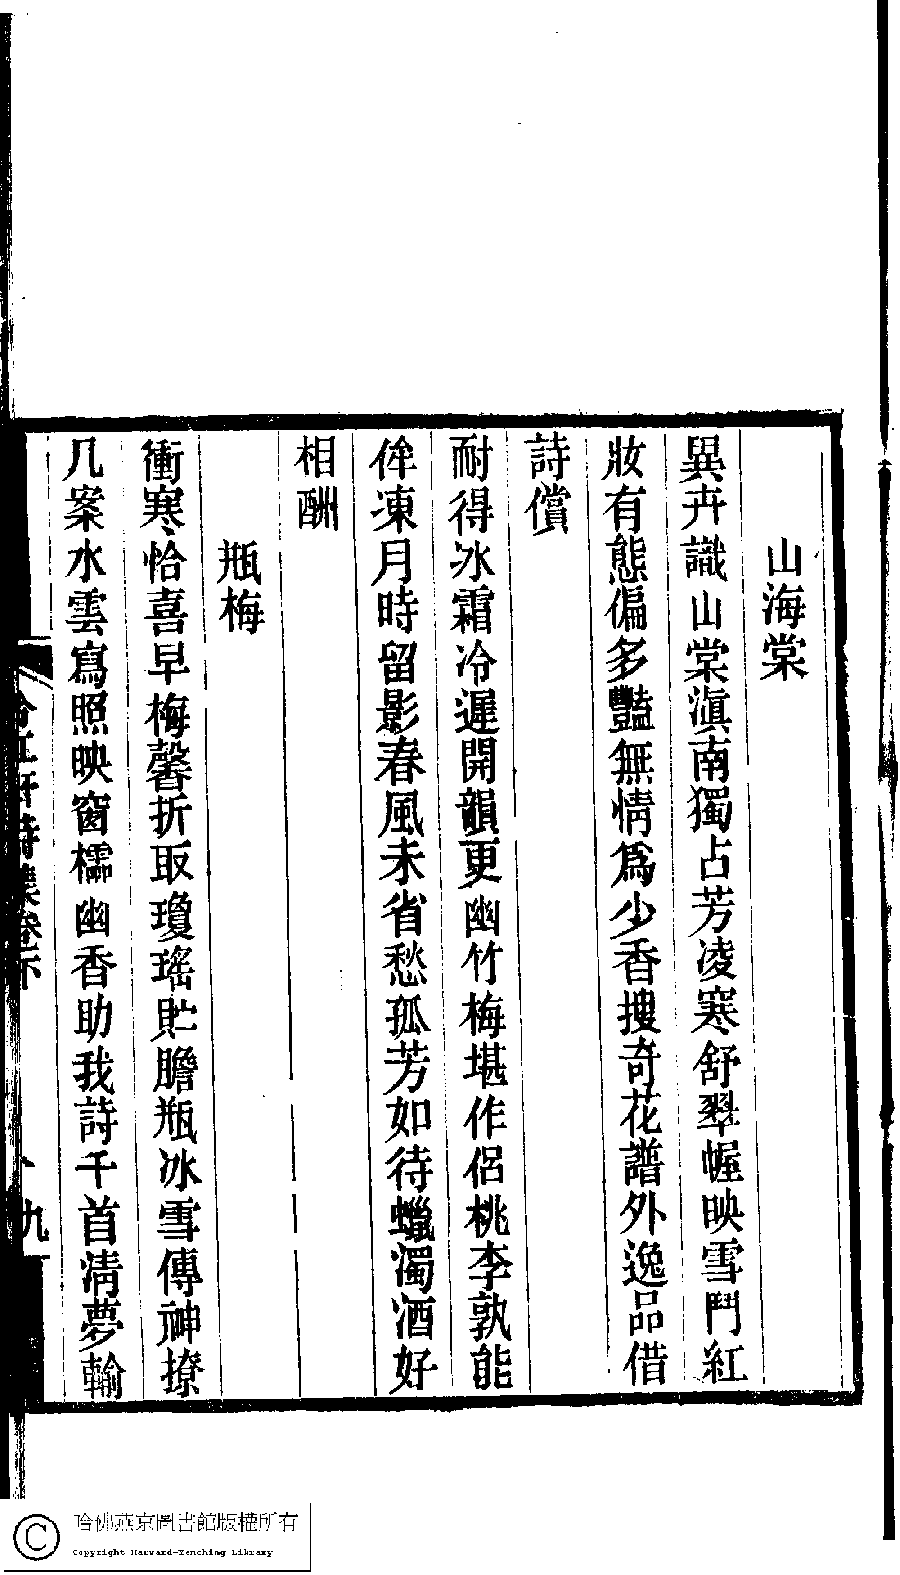 山海棠
異卉識山棠滇南獨占芳凌寒舒翠幄映雪鬥紅
妝有態偏多豔無情爲少香搜奇花譜外逸品借
詩償
耐得冰霜冷遲開韻更幽竹梅堪作侶桃李孰能
侔凍月時留影春風未省愁孤芳如待蠟濁酒好
相酬
瓶梅
衝寒恰喜早梅馨折取瓊瑤貯膽瓶冰雪傳神撩
几案水雲寫照映窗櫺幽香助我詩千首清夢輸
詩集卷下
九
哈佛燕京圖書館版權所有
Copyright Harvard-Yenching Library